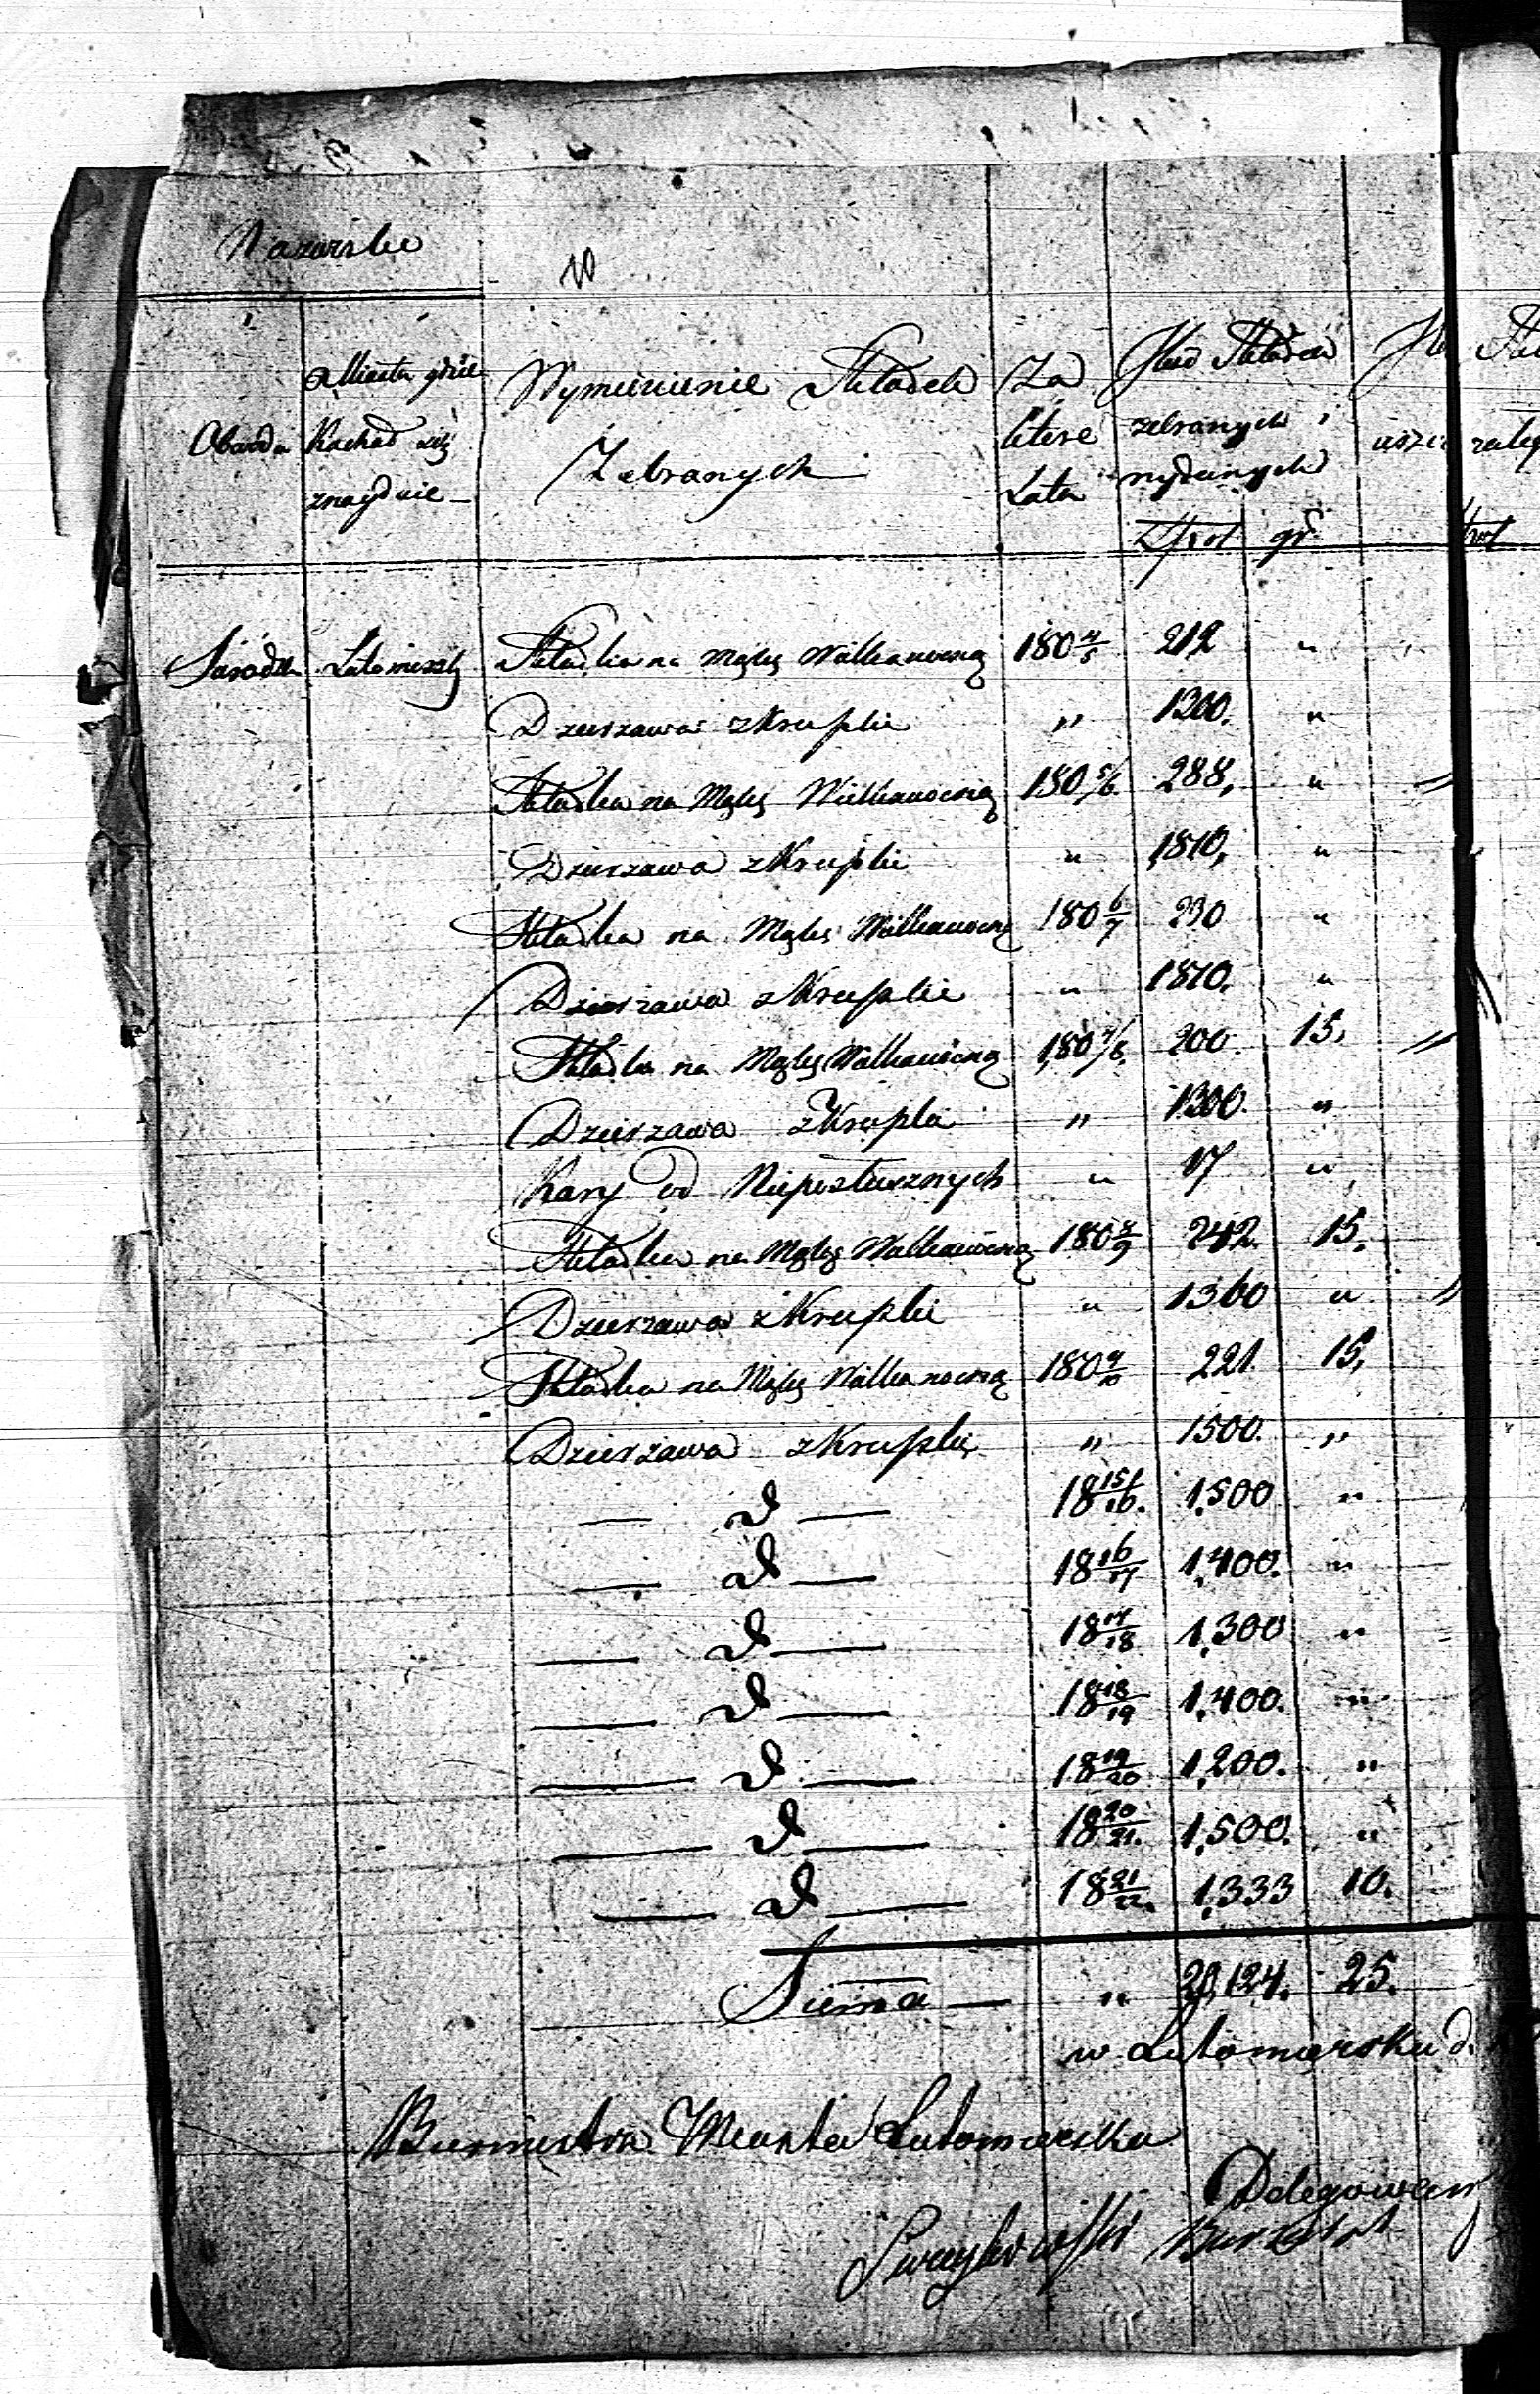 Nazwisko
10
Obwodu
Miasta gdzie Kachał się znayduie
Wymienienie Składek Zebranych
Za które Lata
Ilość Składek zebranych i wydanych
Złpol gr
Sieradzki Lutomiersk Składka na Mąkę Wielkanocną 180 4/5 212 "
Dzierzawa z Krupki " 1300. "
Składka na Mąkę Wielkanocną 180 5/6 288, "
Dzierzawa z Krupki " 1810, "
Składka na Mąkę Wielkanocną 180 6/7 230 "
Dzierzawa z Krupki " 1810. "
Składka na Mąkę Wielkanocną 180 7/8 200. 15,
Dzierzawa z Krupki " 1300. "
Kary od Nieposłusznych " 17 "
Składka na Mąkę Wielkanocną 180 8/9 242. 15.
Dzierzawa z Krupki " 1360 "
Składka na Mąkę Wielkanocną 180 9/10 221 15,
Dzierzawa z Krupki " 1500. "
— d — 18 15/16. 1,500 "
— d — 18 16/17 1,400. "
— d — 18 17/18 1,300 "
— d — 18 18/19 1,400. "
— d — 18 19/20 1,200. "
— d — 18 20/21. 1,500. "
— d — 18 21/22. 1,333 10.
Suma — " 20,124. 25.
w Lutomiersku d.
Burmistrz Miasta Lutomierska
Delegowany